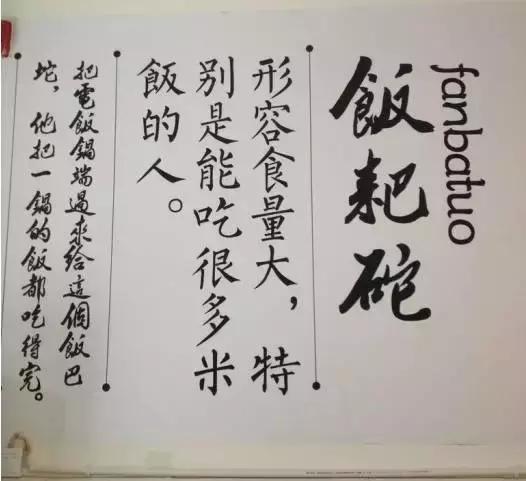 fanbatuo
飯耙砣
形容食量大，特
别是能吃很多米
飯的人。
把電飯鍋端過來给這個飯巴
坨，他把一鍋的飯都吃得完。